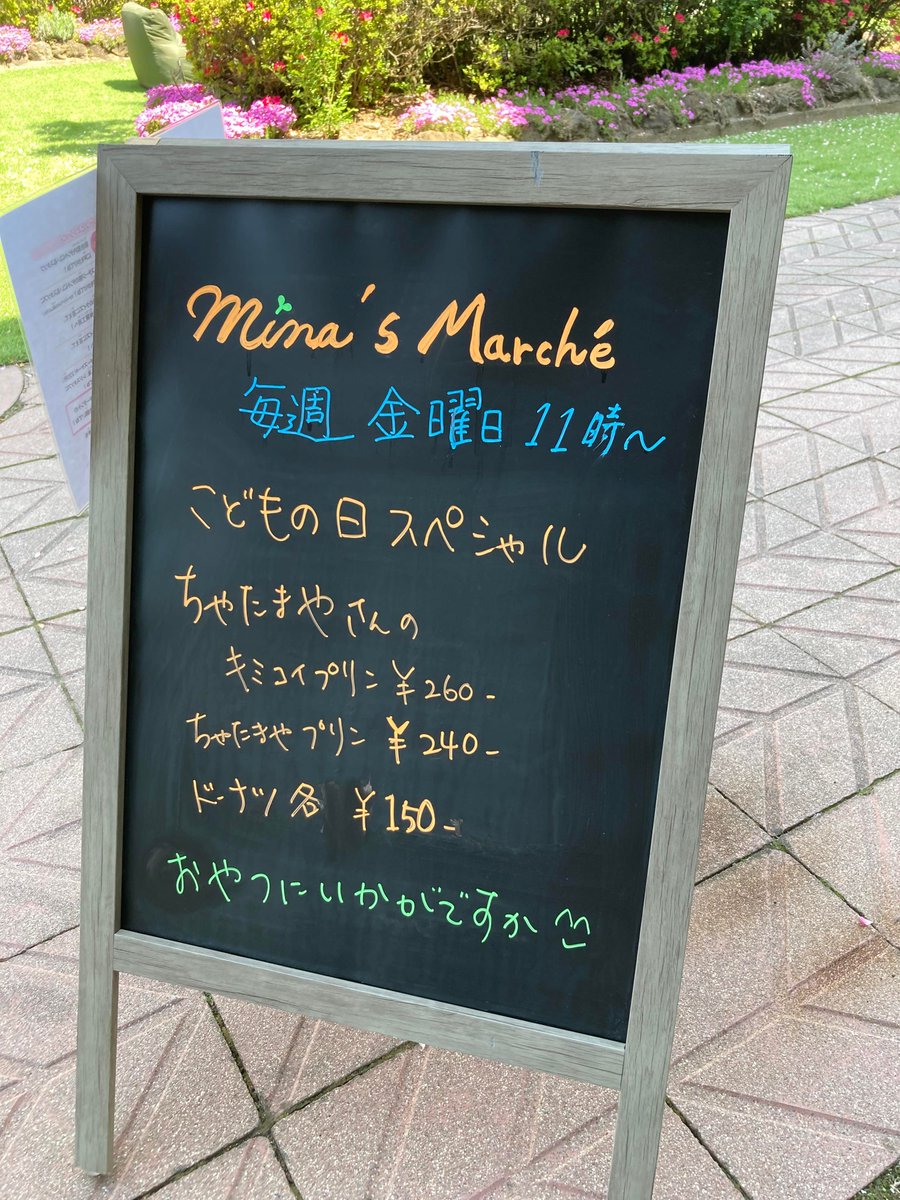 Mina's Marché
毎週 金曜日 11時~
こどもの日スペシャル
ちゃたまやさんの
キミコイプリン ¥260-
ちゃたまやプリン ¥240-
ドーナツ 各 ¥150-
おやつにいかがですか ^^